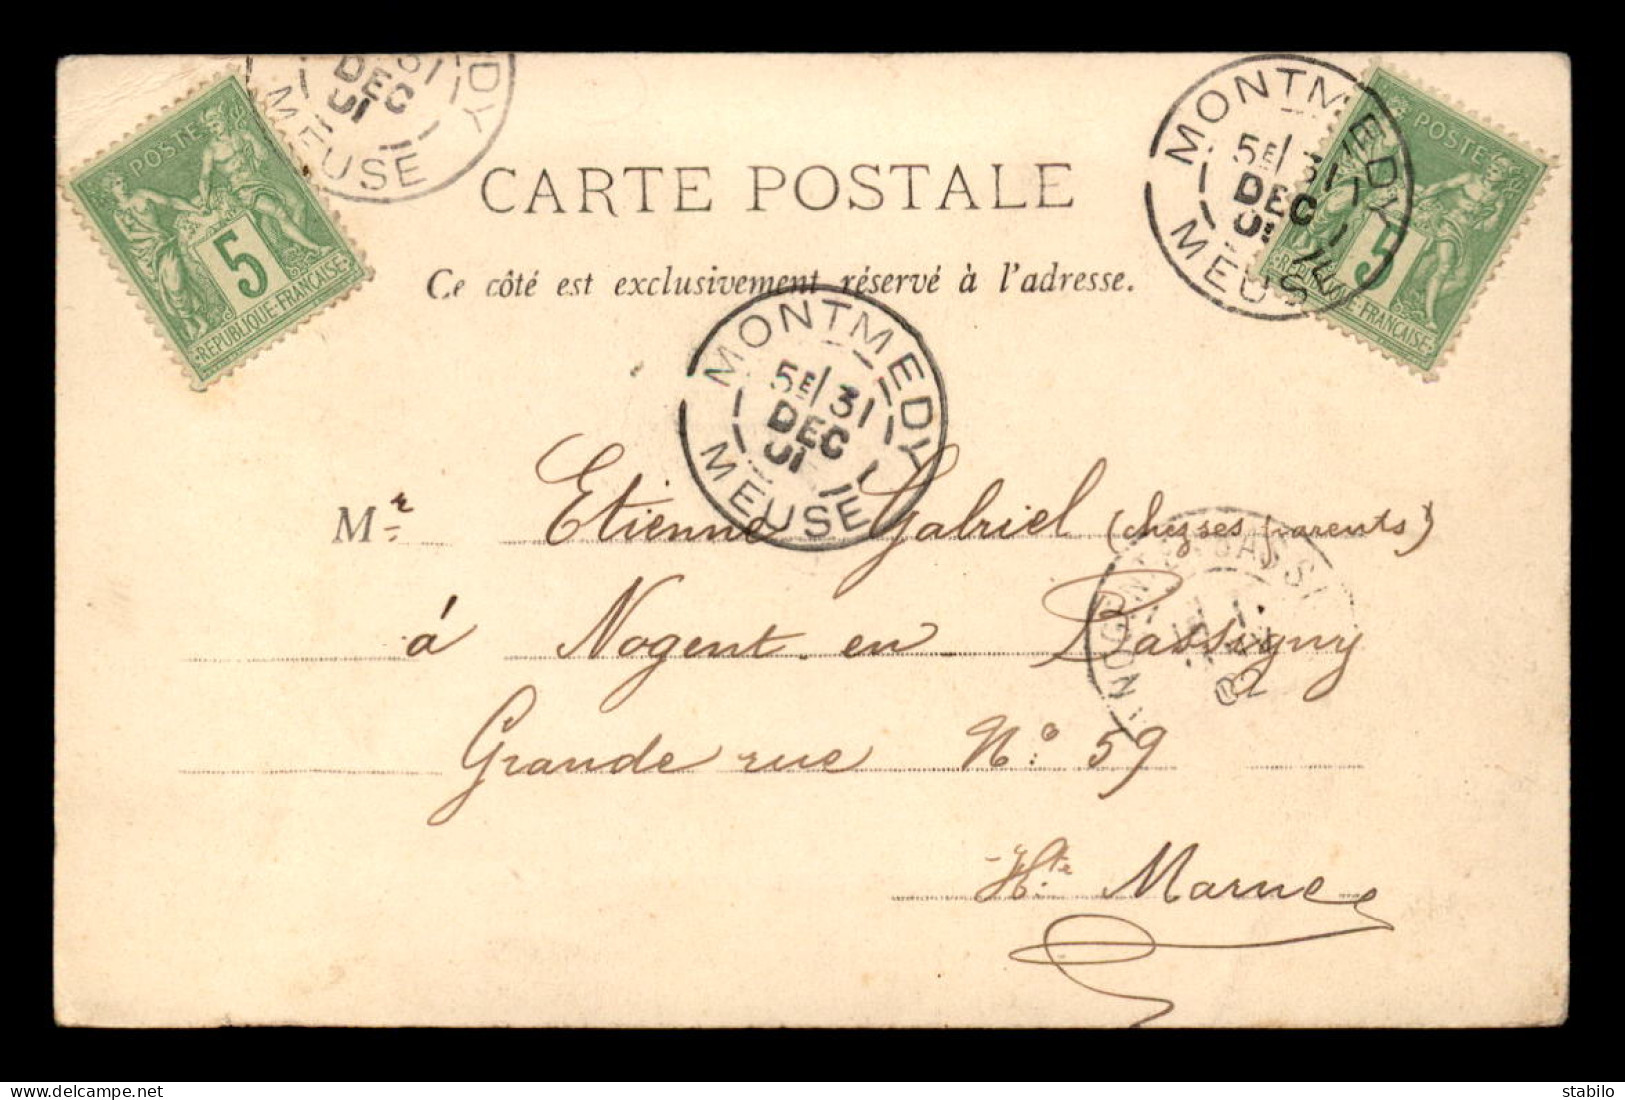 DEC
01
MEUSE
POSTE
5
RÉPUBLIQUE-FRANÇAISE
MONTMEDY
5E/31
DEC
01
MEUSE
POSTE
5
REPUBLIQUE-FRANÇAISE
CARTE POSTALE
Ce côté est exclusivement réservé à l'adresse.
MONTMEDY
5E/31
DEC
01
MEUSE
Mr Etienne Gabriel (chez ses parents)
á Nogent-en-Bassigny
02
Grande rue N° 59
Hte Marne
stabilo